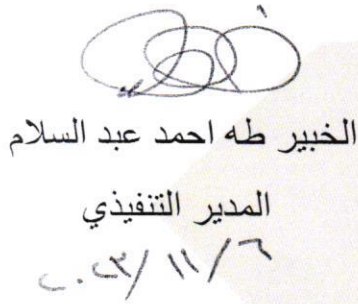 الخبير طه احمد عبد السلام
المدير التنفيذي
٢٠٢٣/١١/٦